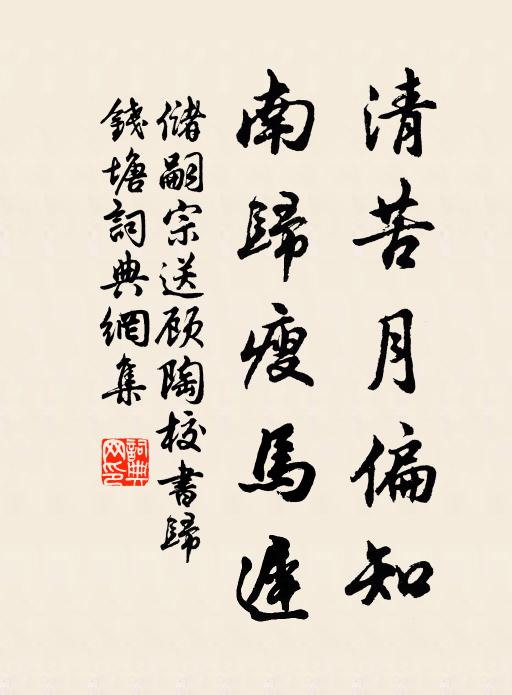 清苦月偏知
南歸瘦馬遲
儲嗣宗送顧陶校書歸
錢塘詞典網集
詞典網印